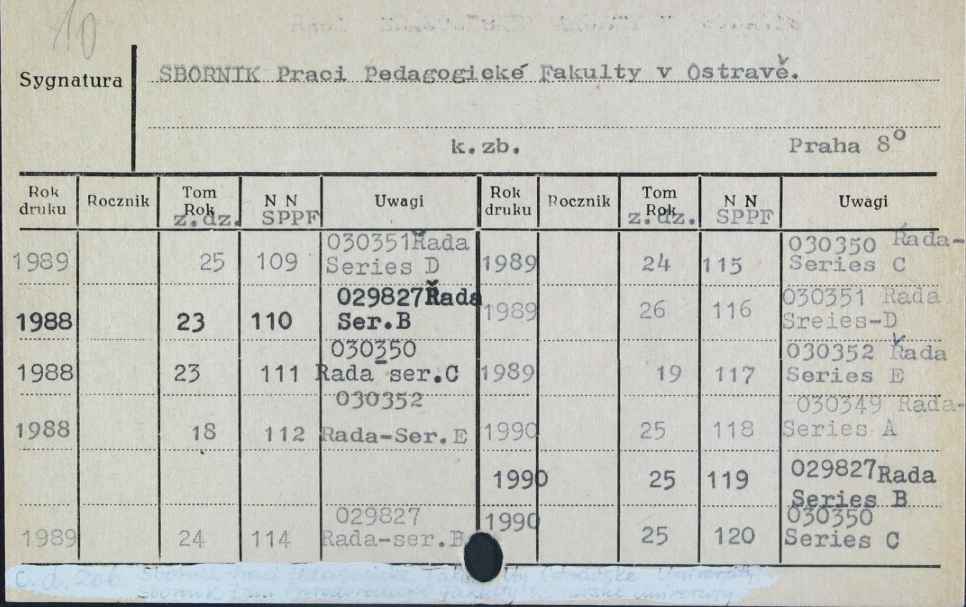 10
Sygnatura SBORNIK Praci Pedagogické Fakulty v Ostravě.
k. zb. Praha 8o
Rok druku Rocznik Tom Rok z.dz. N N SPPF Uwagi Rok druku Rocznik Tom Rok z.dz. N N SPPF Uwagi
1989 25 109 030351 Řada Series D 1989 24 115 030350 Řada- Series C
1988 23 110 029827 Řada Ser.B 1989 26 116 030351 Rada Sreies-D
1988 23 111 030350 Rada ser.C 1989 19 117 030352 Řada Series E
1988 18 112 030352 Rada-Ser.E 1990 25 118 030349 Rada- Series A
1990 25 119 029827 Rada Series B
1989 24 114 029827 Rada-ser.B 1990 25 120 030350 Series C
C.d. zob. Sborník prací Pedagogické Fakulty Ostravské Univerzity